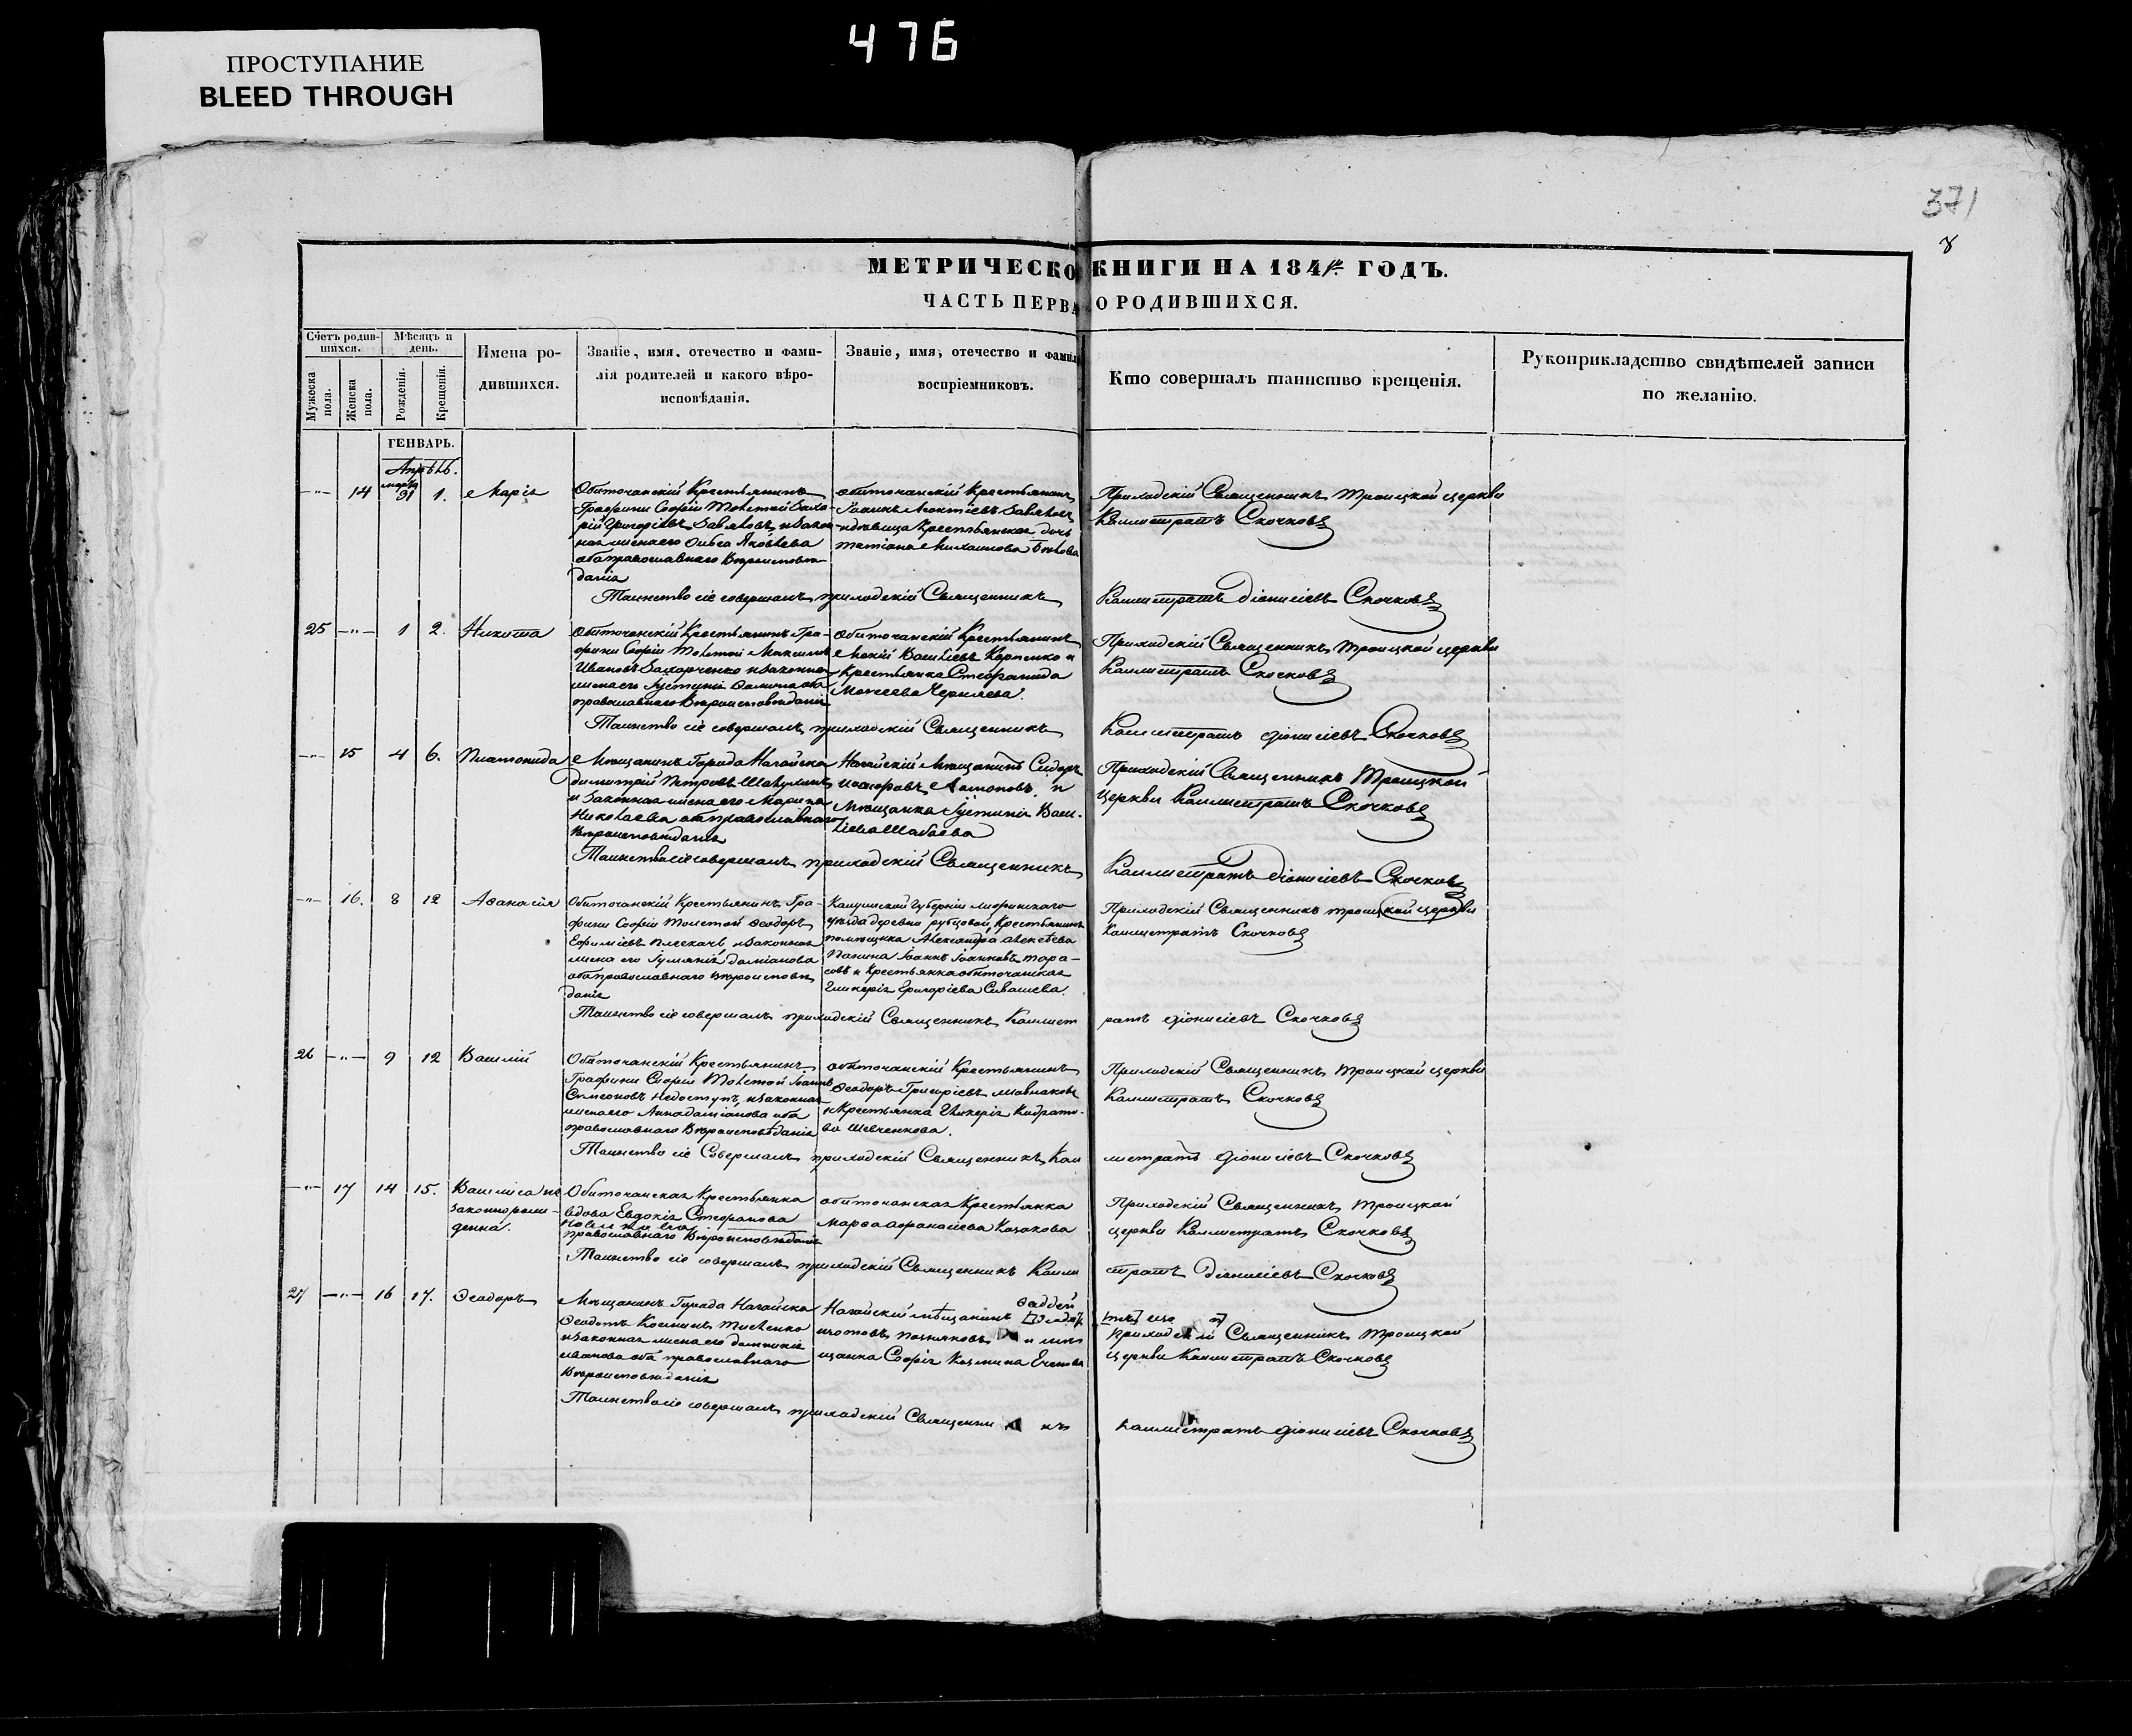 476
ПРОСТУПАНИЕ
BLEED THROUGH
371
8
МЕТРИЧЕСКО КНИГИ НА 1841 ГОДЪ.
ЧАСТЬ ПЕРВА О РОДИВШИХСЯ.
Счетъ родив-
шихся.
Мужеска пола.
Женска пола.
Мѣсяцъ и
день.
Рожденія.
Крещенія.
Имена ро-
дившихся.
Званіе, имя, отечество и фами-
лія родителей и какого вѣро-
исповѣданія.
Званіе, имя, отечество и фамил
воспріемниковъ.
Кто совершалъ таинство крещенія.
Рукоприкладство свидѣтелей записи
по желанію.
ГЕНВАРЬ.
Апрѣль.
-"- 14 марта 31 1. Марія
Обиточанскій Крестьянинъ
Графини Софіи Толстой Заха-
рій Григоріевъ
жена его Ольга Яковлева
оба православнаго Вѣроисповѣ-
данія
обиточанскій Крестьянинъ
Іоаннъ Леонтіевъ
Крестьянская дочь
Татіана Михаилова
Приходскій Священникъ Троицкой церкви
Каллистратъ Скочковъ
Таинство сіе совершалъ приходскій Священникъ Каллистратъ Діонисіевъ Скочковъ
25 -"- 1 2. Никита
Обиточанскій Крестьянинъ Гра-
фини Софіи Толстой Максимъ
Ивановъ Захарченко и законная
жена его Іустинія оба
православнаго Вѣроисповѣданія
Обиточанскій Крестьянинъ
Мокій Васильевъ Карпенко и
Крестьянка Стефанида
Моисеева Черняева.
Приходскій Священникъ Троицкой церкви
Каллистратъ Скочковъ
Таинство сіе совершалъ приходскій Священникъ Каллистратъ Діонисіевъ Скочковъ
-"- 15 4 6. Платонида
Мѣщанинъ Города Нагайска
Димитрій Петровъ
и Законная жена его Марина
Николаева оба православнаго
Вѣроисповѣданія
Нагайскій Мѣщанинъ Сидоръ
и
Мѣщанка Іустинія Васи-
ліева Шабаева
Приходскій Священникъ Троицкой
Церкви Каллистратъ Скочковъ
Таинство сіе совершалъ приходскій Священникъ Каллистратъ Діонисіевъ Скочковъ
-"- 16. 8 12 Аѳанасія
Обиточанскій Крестьянинъ Гра-
фини Софіи Толстой Ѳеодоръ
Ефиміевъ Плескачъ и законная
жена его Даміанова
оба православнаго Вѣроисповѣ
данія
Калужской Губерніи
уѣзда деревни рубцовой, Крестьянинъ
помѣщика Александра Алексѣева
Панина Іоаннъ Іоанновъ Тара-
совъ и Крестьянка обиточанская
Гликерія Григоріева Сивашева.
Приходскій Священникъ Троицкой церкви
Каллистратъ Скочковъ
Таинство сіе совершалъ приходскій Священникъ Каллист ратъ Діонисіевъ Скочковъ
26 -"- 9 12 Василій
Обиточанскій Крестьянинъ
Графини Софіи Толстой Іоаннъ
Симеоновъ Недоступъ, и законная
жена его Анна Даміанова оба
православнаго Вѣроисповѣданія
обиточанскій Крестьянинъ
Ѳеодоръ Григоріевъ
и Крестьянка Гликерія Кидрато-
ва Шевченкова.
Приходскій Священникъ Троицкой церкви
Каллистратъ Скочковъ
Таинство сіе Совершалъ приходскій Священникъ Кал листратъ Діонисіевъ Скочковъ
-"- 17 14 15. Василіса не
законнорож-
денна.
Обиточанская Крестьянка
вдова Евдокія Стефанова
православнаго Вѣроисповѣданія
обиточанская Крестьянка
Марѳа Аѳанасіева Казакова
Приходскій Священникъ Троицкой
церкви Каллистратъ Скочковъ
Таинство сіе совершалъ приходскій Священникъ Калли стратъ Діонисіевъ Скочковъ
27 -"- 16 17. Ѳеодоръ
Мѣщанинъ Города Нагайска
Ѳеодотъ Козминъ
и законная жена его Домникія
иванова оба православнаго
Вѣроисповѣданія
Нагайскій мѣщанинъ Ѳаддей
и мѣ
щанка Софія Козмина
приходскій Священникъ Троицкой
Церкви Каллистратъ Скочковъ
Таинство сіе совершалъ приходскій Священни къ Каллистратъ Діонисіевъ Скочковъ